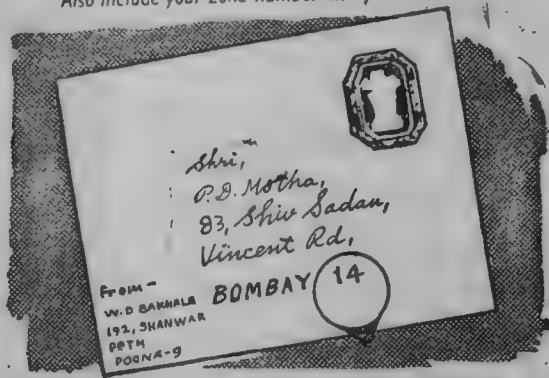 Also include your zone number
Shri,
P.D. Motha,
83, Shiv Sadan,
Vincent Rd,
BOMBAY 14
From -
W.D BAKHALE
192, SHANWAR
PETH
POONA-9